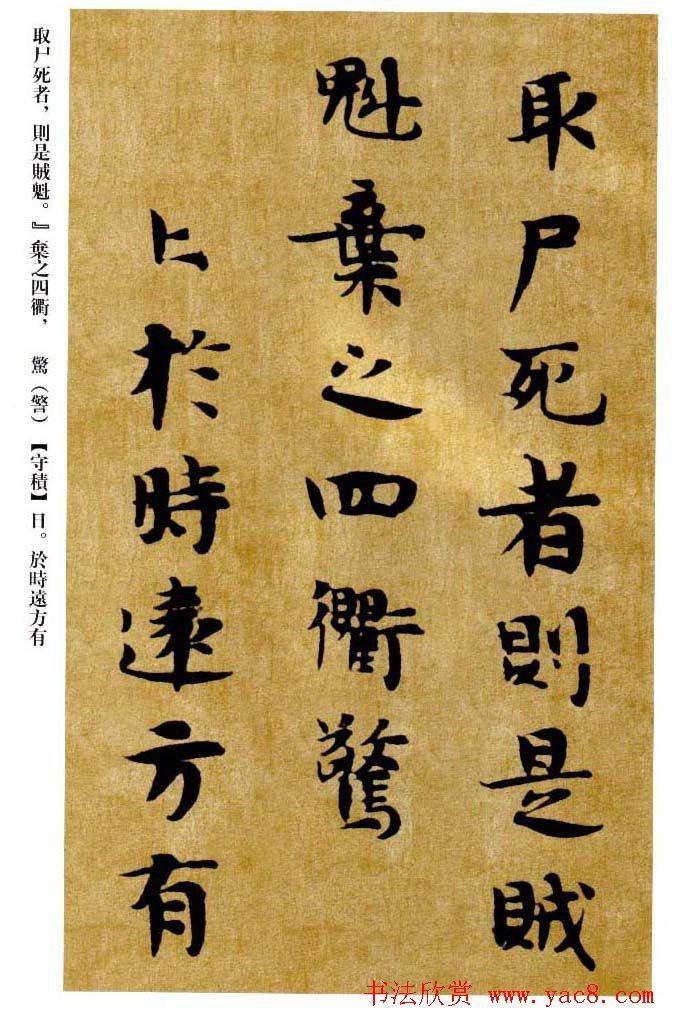 取尸死者則是賊
魁棄之四衢驚
於時遠方有
取尸死者，則是賊魁。』棄之四衢，　驚（警）【守積】日。於時遠方有
书法欣赏 www.yac8.com